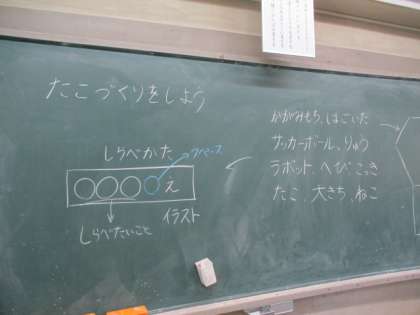 たこづくりをしよう
しらべかた
スペース
え
イラスト
しらべたいこと
かがみもち、はごいた
サッカーボール、りゅう
ラボット、へびこっき
たこ、大きち、ねこ